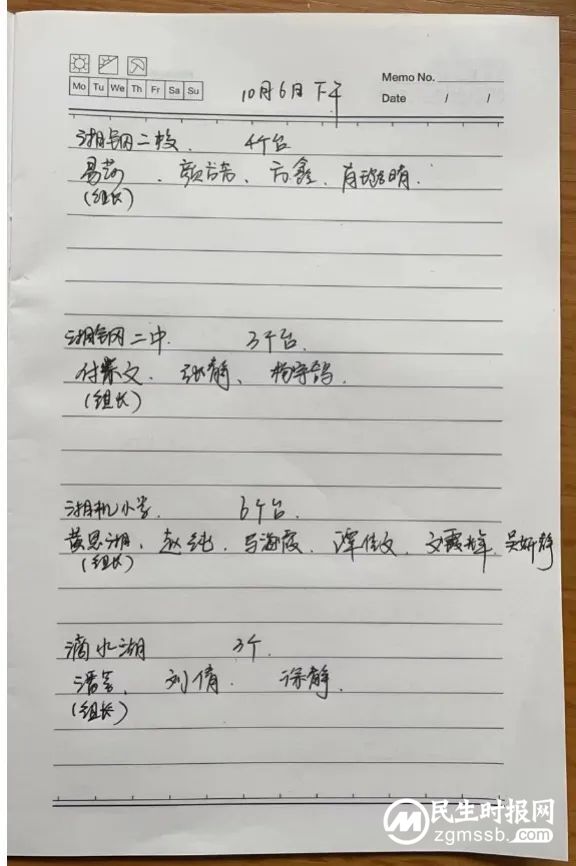 Mo Tu We Th Fr Sa Su
Memo No.
Date / /
10月6日下午
湘钢二校. 4个台
易莎、颜喆、方鑫、肖璐晴.
(组长)
湘钢二中. 3个台.
付紫文. 张静、杨宇鸽.
(组长)
湘机小学. 6个台.
黄思湖、赵纯、马海霞、谭佳文、文霞辉、吴妍静
(组长)
滴水湖 3个.
潘 、刘倩. 涂静.
(组长)
民生时报网
zgmssb.com